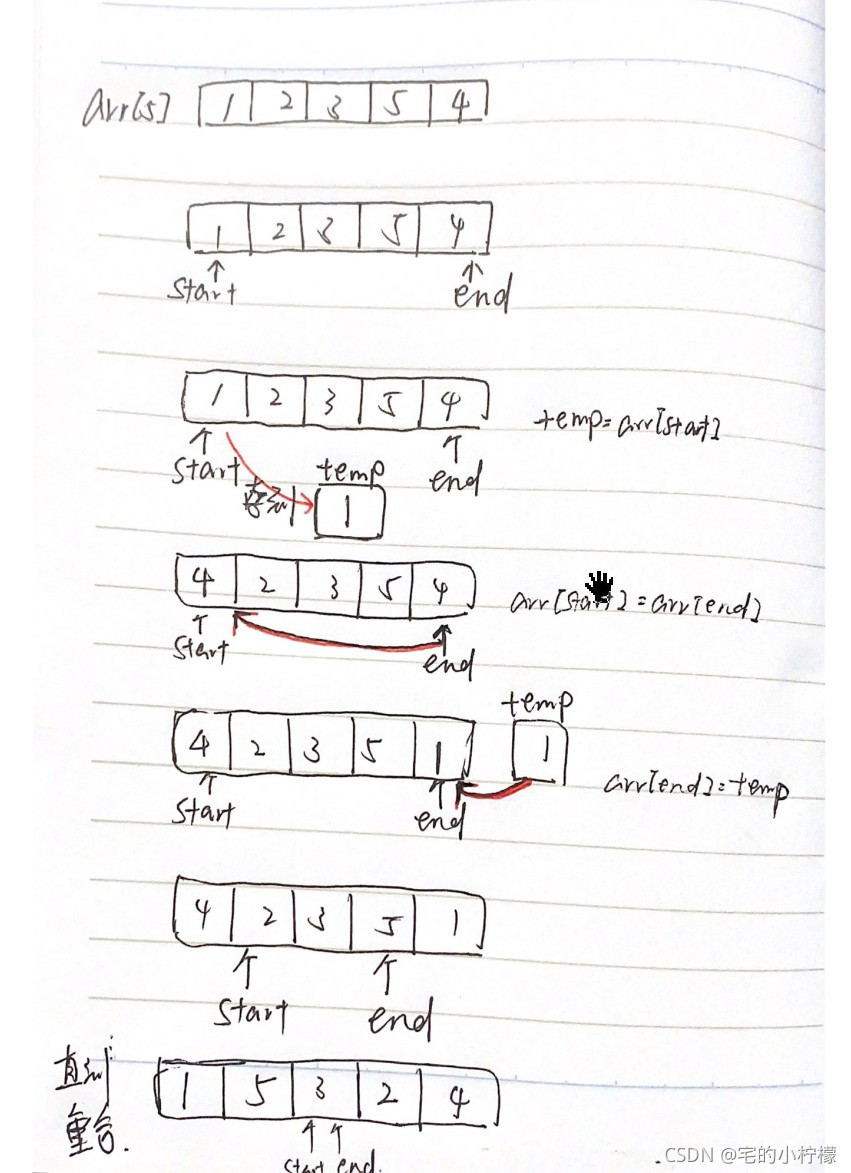 arr[5] 1 2 3 5 4
1 2 3 5 4
start end
1 2 3 5 4 temp=arr[start]
start temp end
1
4 2 3 5 4 arr[start]=arr[end]
start end
temp
4 2 3 5 1 1
arr[end]=temp
start end
4 2 3 5 1
start end
直到
1 5 3 2 4
重合.
start end.
CSDN @宅的小柠檬